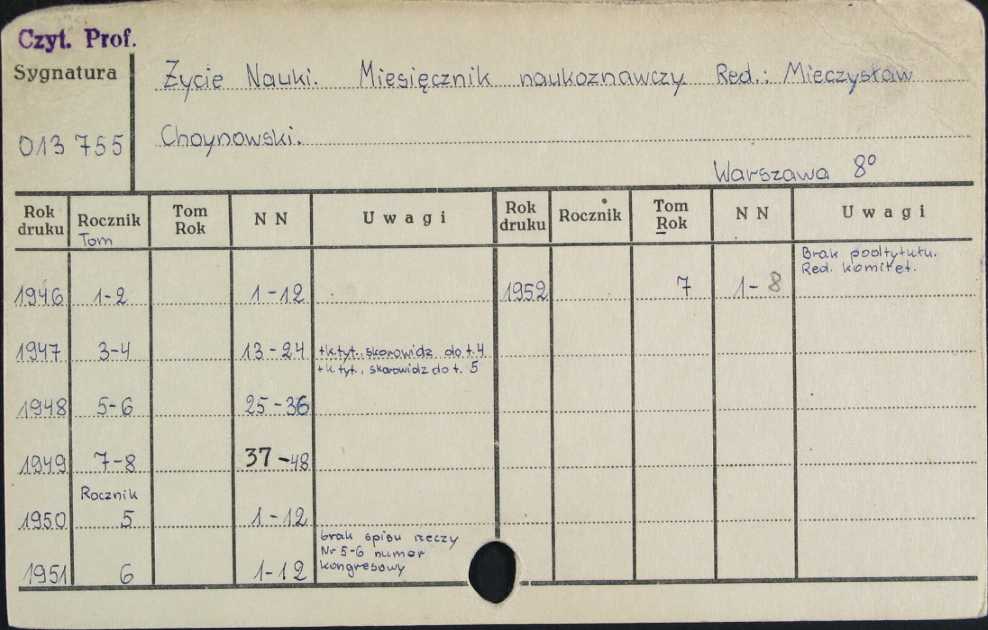 Czyt. Prof.
Sygnatura
Życie Nauki. Miesięcznik naukoznawczy Red.: Mieczysław
013 755 Choynowski.
Warszawa 8°
Rok druku Rocznik Tom Rok N N Uwagi Rok druku Rocznik Tom Rok N N Uwagi
Tom
Brak podtytułu.
Red. komitet.
1946 1-2 1-12 1952 7 1-8
1947 3-4 13-24 +k.tyt. skorowidz do t. 4
+k tyt., skorowidz do t. 5
1948 5-6 25-36
1949 7-8 37-48
Rocznik
1950 5 1-12
brak spisu rzeczy
Nr 5-6 numer
1951 6 1-12 kongresowy